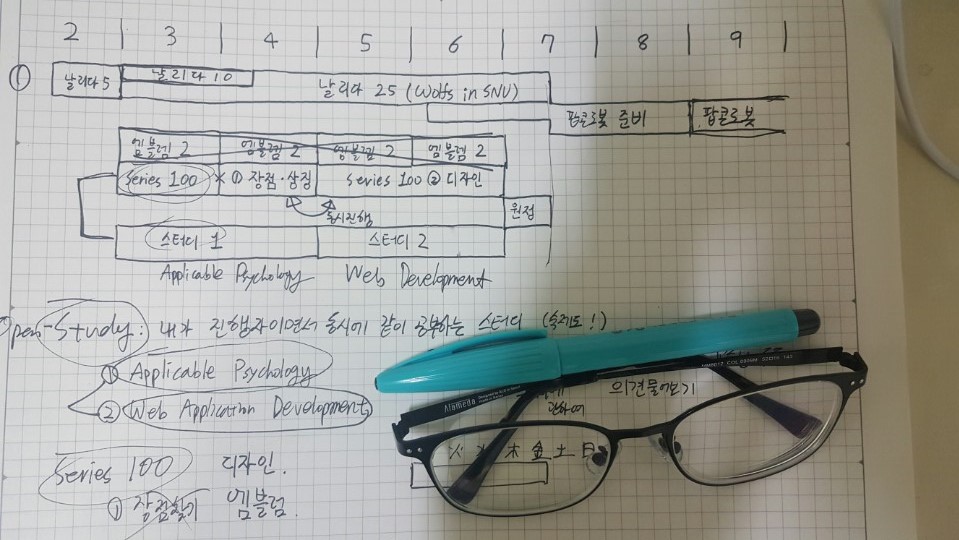 2 3 4 5 6 7 8 9
① 날리다 5 날리다 10 날리다 25 (Wolfs in SNU)
팝콘로봇 준비 팝콘로봇
엠블렘 2 엠블렘 2 엠블렘 2 엠블렘 2
Series 100 ① 장점·상징 series 100 ② 디자인
동시진행 원점
스터디 1 스터디 2
Applicable Psychology Web Development
Open-Study: 내가 진행자이면서 동시에 같이 공부하는 스터디 (숙제도!)
① Applicable Psychology
의견물어보기
② Web Application Development
관하여
木 金 土 日
Series 100 디자인.
① 장점찾기 엠블럼.